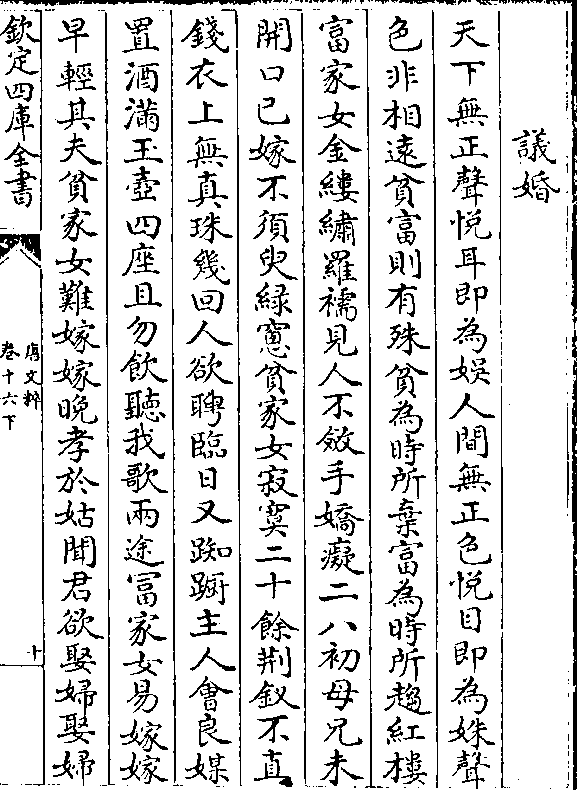 議婚
天下無正聲悅耳即為娛人間無正色悅目即為姝聲
色非相遠貧富則有殊貧為時所棄富為時所趨紅樓
富家女金縷繡羅襦見人不斂手嬌癡二八初母兄未
開口已嫁不須臾緑窻貧家女寂寞二十餘荆釵不直
錢衣上無真珠幾回人欲聘臨日又踟蹰主人會良媒
置酒滿玉壺四座且勿飲聽我歌兩途富家女易嫁嫁
早輕其夫貧家女難嫁嫁晚孝於姑聞君欲娶婦娶婦
欽定四庫全書
唐文粹
卷十六下
十